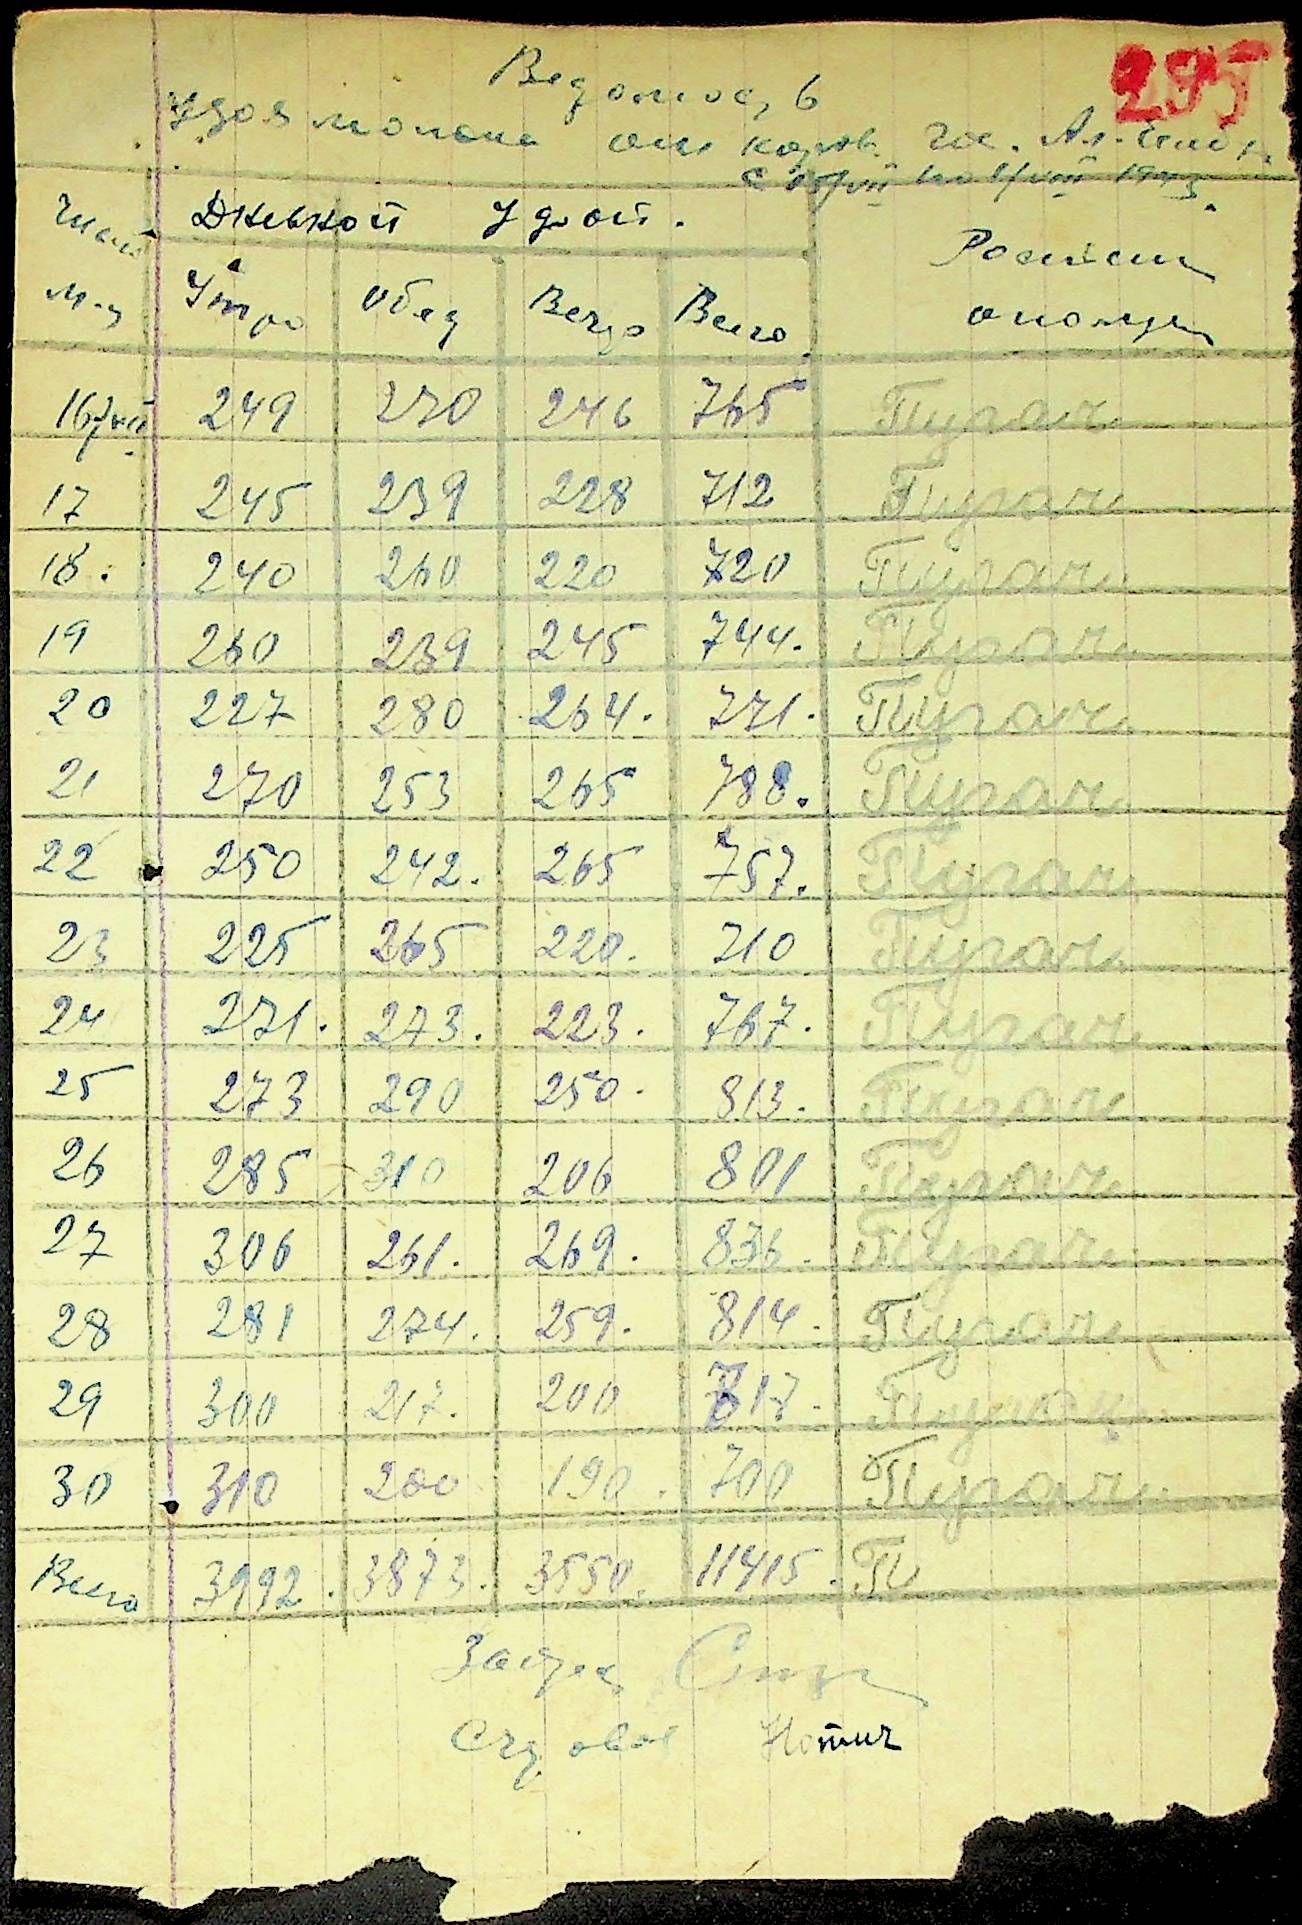 295
Ведомость
Удоя молока от коров. гос.
Дневной Удой.
Утро Обед Вечер Всего
16/VII 249 270 246 765 Пугач
17 245 239 228 712 Пугач
18. 240 260 220 720 Пугач
19 260 239 245 744. Пугач
20 227 280 264. 771. Пугач
21 270 253 265 788. Пугач
22 250 242. 265 757. Пугач
23 225 265 220. 710 Пугач
24 271. 273. 223. 767. Пугач
25 273 290 250. 813. Пугач
26 285 310 206 801 Пугач
27 306 261. 269. 836. Пугач
28 281 274. 259. 814. Пугач
29 300 217. 200 717. Пугач
30 310 200 190. 700 Пугач
Всего 3992. 3873. 3550. 11415. П